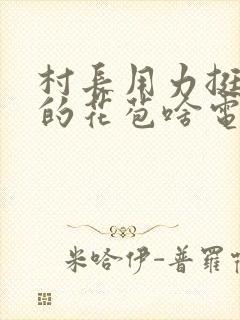 村長用力挺
的花苞啥電
米哈伊-普羅